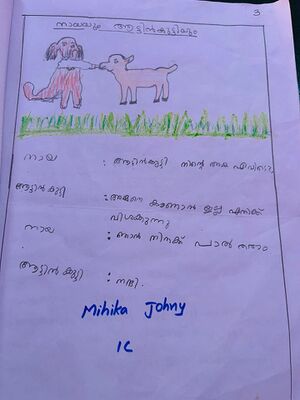 3
നായയും ആട്ടിൻകുട്ടിയും
നായ : ആട്ടിൻകുട്ടി നിന്റെ അമ്മ എവിടെ
ആട്ടിൻ കുട്ടി : അമ്മയെ കാണാൻ ഇല്ല എനിക്ക്
വിശക്കുന്നു
നായ : ഞാൻ നിനക്ക് പാൽ തരാം
ആട്ടിൻ കുട്ടി : നന്ദി.
Mihika Johny
1C